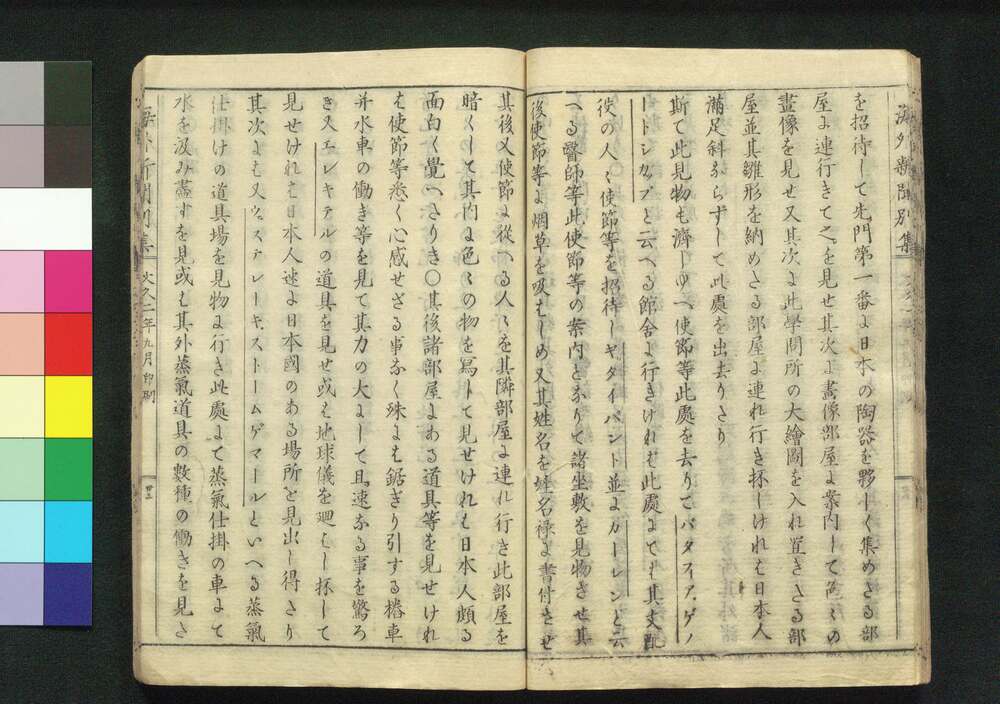 海外新聞別集
を招待して先門第一番よ日本の陶器を夥しく集めさる部
屋よ連行きて之を見せ其次よ畫像部屋よ案内して色〻の
畫像を見せ又其次よ此學問所の大繪圖を入れ置きさる部
屋並其雛形を納めさる部屋よ連れ行き抔しけれは日本人
滿足斜ならずして此處を出去りさり
斯て此見物も濟しうへ使節等此處を去りてバタフィアゲノ
ートシカップと云へる館舎よ行きけれは此處よても其支配
役の人〻使節等を招待しギタイバント並よカーレンと云
へる醫師等此使節等の案内となりて諸坐敷を見物させ其
後使節等よ烟草を吸はしめ又其姓名を姓名禄よ書付させ
其後又使節よ從へる人〻を其隣部屋よ連れ行き此部屋を
暗くして其内よ色〻の物を寫して見せけれは日本人頗る
面白く覺へさりき〇其後諸部屋よある道具等を見せけれ
は使節等悉く心感せざる事なく殊よも鋸ぎり引する樁車
并水車の働き等を見て其力の大よして且速なる事を驚ろ
き又エレキテルの道具を見せ或は地球儀を廻はし抔して
見せけれは日本人速よ日本國のある場所を見出し得さり
其次よも又ウヱテレーキストームゲマールといへる蒸氣
仕掛けの道具場を見物よ行き此處よて蒸氣仕掛の車よて
水を汲み盡すを見或は其外蒸氣道具の數種の働きを見さ
海外新聞別集
文久二年九月印刷
廿三